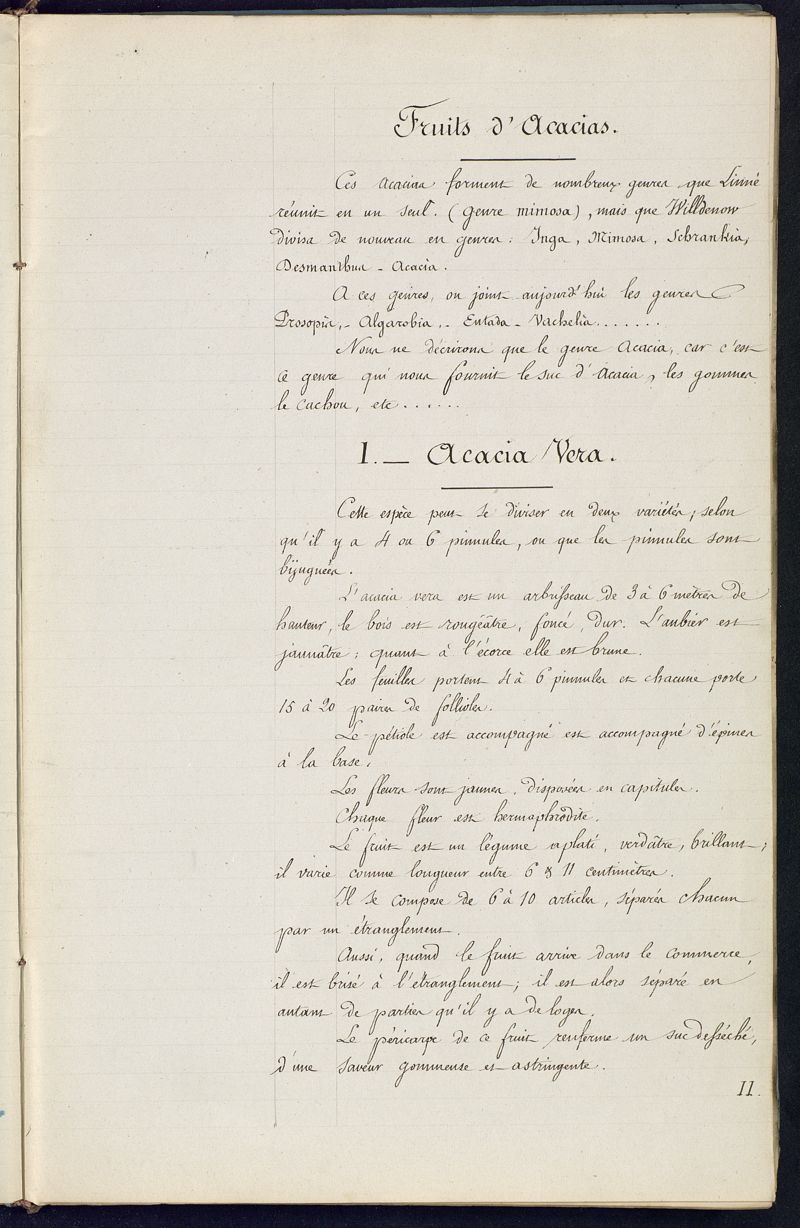 Fruits d'Acacias.
Ces acacias forment de nombreux genres que Linné
réunit en un seul. (genre mimosa), mais que Willdenow
divisa de nouveau en genres : Inga, Mimosa, Schrankia,
Desmanthus - Acacia.
A ces genres, on joint aujourd'hui les genres
Prosopis, - Algarobia, - Entada - Vachelia.......
Nous ne décrirons que le genre Acacia, car c'est
ce genre qui nous fournit le suc d'Acacia, les gommes
le cachou, etc......
I. — Acacia Vera.
Cette espèce peut se diviser en deux variétés; selon
qu'il y a 4 ou 6 pinnules, ou que les pinnules sont
bijuguées.
L'acacia vera est un arbrisseau de 3 à 6 mètres de
hauteur, le bois est rougeâtre, foncé, dur. L'aubier est
jaunâtre ; quant à l'écorce elle est brune.
Les feuilles portent 4 à 6 pinnules et chacune porte
15 à 20 paires de folioles.
Le pétiole est accompagné est accompagné d'épines
à la base.
Les fleurs sont jaunes, disposées en capitules.
Chaque fleur est hermaphrodite.
Le fruit est un légume aplati, verdâtre, brillant;
il varie comme longueur entre 6 & 11 centimètres.
Il se compose de 6 à 10 articles, séparés chacun
par un étranglement.
Aussi, quand le fruit arrive dans le commerce,
il est brisé à l'étranglement; il est alors séparé en
autant de parties qu'il y a de loges.
Le péricarpe de ce fruit renferme un suc desséché,
d'une saveur gommeuse et astringente.
11.